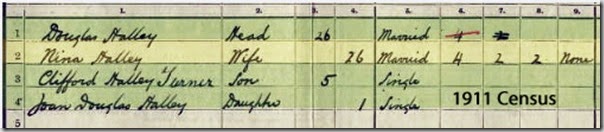 1. 2. 3. 4. 5. 6. 7. 8. 9.
1 Douglas Halley Head 26 Married 4
2 Nina Halley Wife 26 Married 4 2 2 None
3 Clifford Halley Turner Son 5 Single
4 Joan Douglas Halley Daughter 1 Single
1911 Census